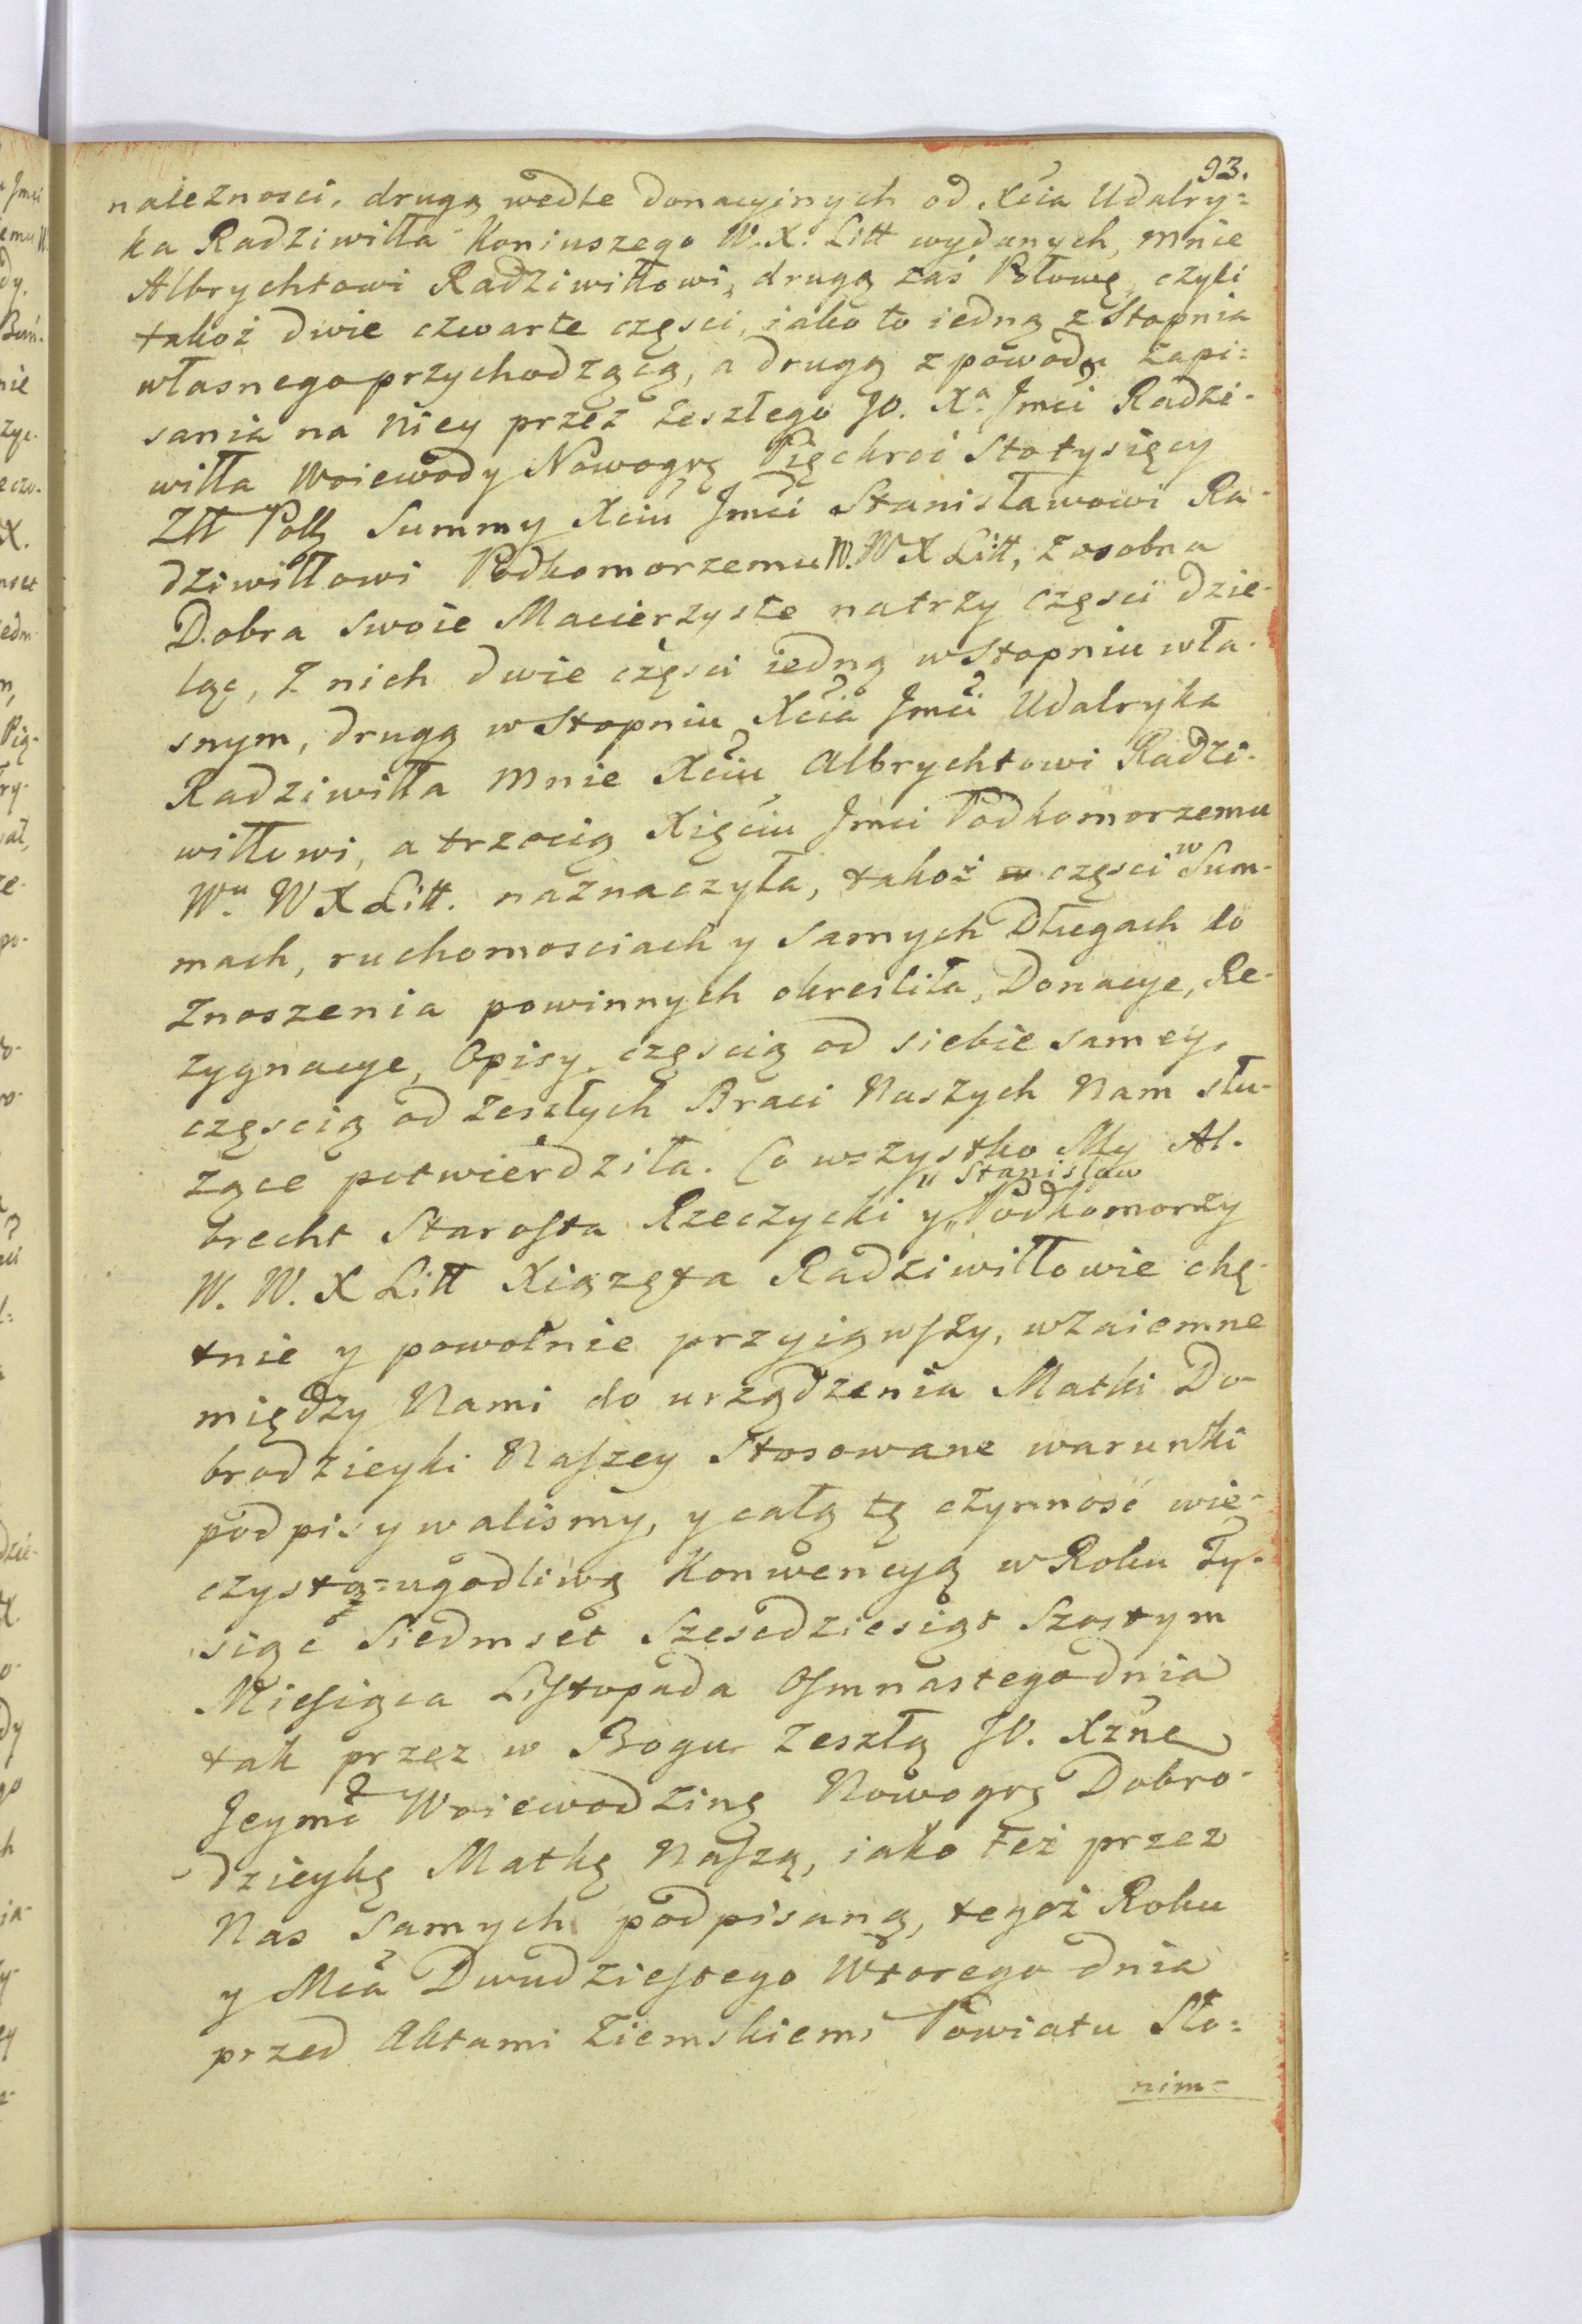 93.
należnosci, drugą wedle donacyinych od Xcia Udalry=
ka Radziwiłła Koniuszego W. X. Litt wydanych, mnie
Albrychtowi Radziwiłłowi, drugą zaś Połowę, czyli
takoż dwie czwarte częsci, iako to iedną z Stopnia
własnego przychodzącą, a drugą z powodu zapi=
sania na Niey przez zeszłego JO. Xa. Jmci Radzi-
wiłła Woiewody Nowogrg Pięckroć Stotysięcy
Złł Pollg Summy Xciu Jmci Stanisławowi Ra-
dziwiłłowi Podkomorzemu W. W X Litt, z osobna
Dobra swoie Macierzyste na trzy częsci dzie-
ląc, z nich dwie częsci iedną w Stopniu wła-
snym, drugą w Stopniu Xcia Jmci Udalryka
Radziwiłła mnie Xciu Albrychtowi Radzi-
wiłłowi, a trzecią Xięciu Jmci Podkomorzemu
Wu W X Litt. naznaczyła, takoż częsci w Sum-
mach, ruchomosciach y samych Długach do
znoszenia powinnych okresliła, Donacye, Re-
zygnacye, Opisy, częscią od siebie samey,
częscią od zeszłych Braci Naszych Nam słu-
żące potwierdziła. Co wszystko My Al-
brecht Starosta Rzeczycki y „Stanisław „Podkomorzy
W. W. X Litt Xiążęta Radziwiłłowie chę-
tnie y powolnie przyiąwszy, wzaiemne
między Nami do urządzenia Matki Do-
brodzieyki Naszey stosowane warunki
podpisywalismy, y całą tę czynność wie-
czysto=ugodliwą Konwencyą w Roku Ty-
siąc Siedmset Szesćdziesiąt Szostym
Miesiąca Listopada Osmnastego dnia
tak przez w Bogu zeszłą JO. Xżnę
Jeymć Woiewodzinę Nowogrg Dobro-
dzieykę Matkę Naszą, iako też przez
Nas Samych podpisaną, tegoż Roku
y Mca Dwudziestego Wtorego dnia
przed Aktami Ziemskiemi Powiatu Sło=
nim-